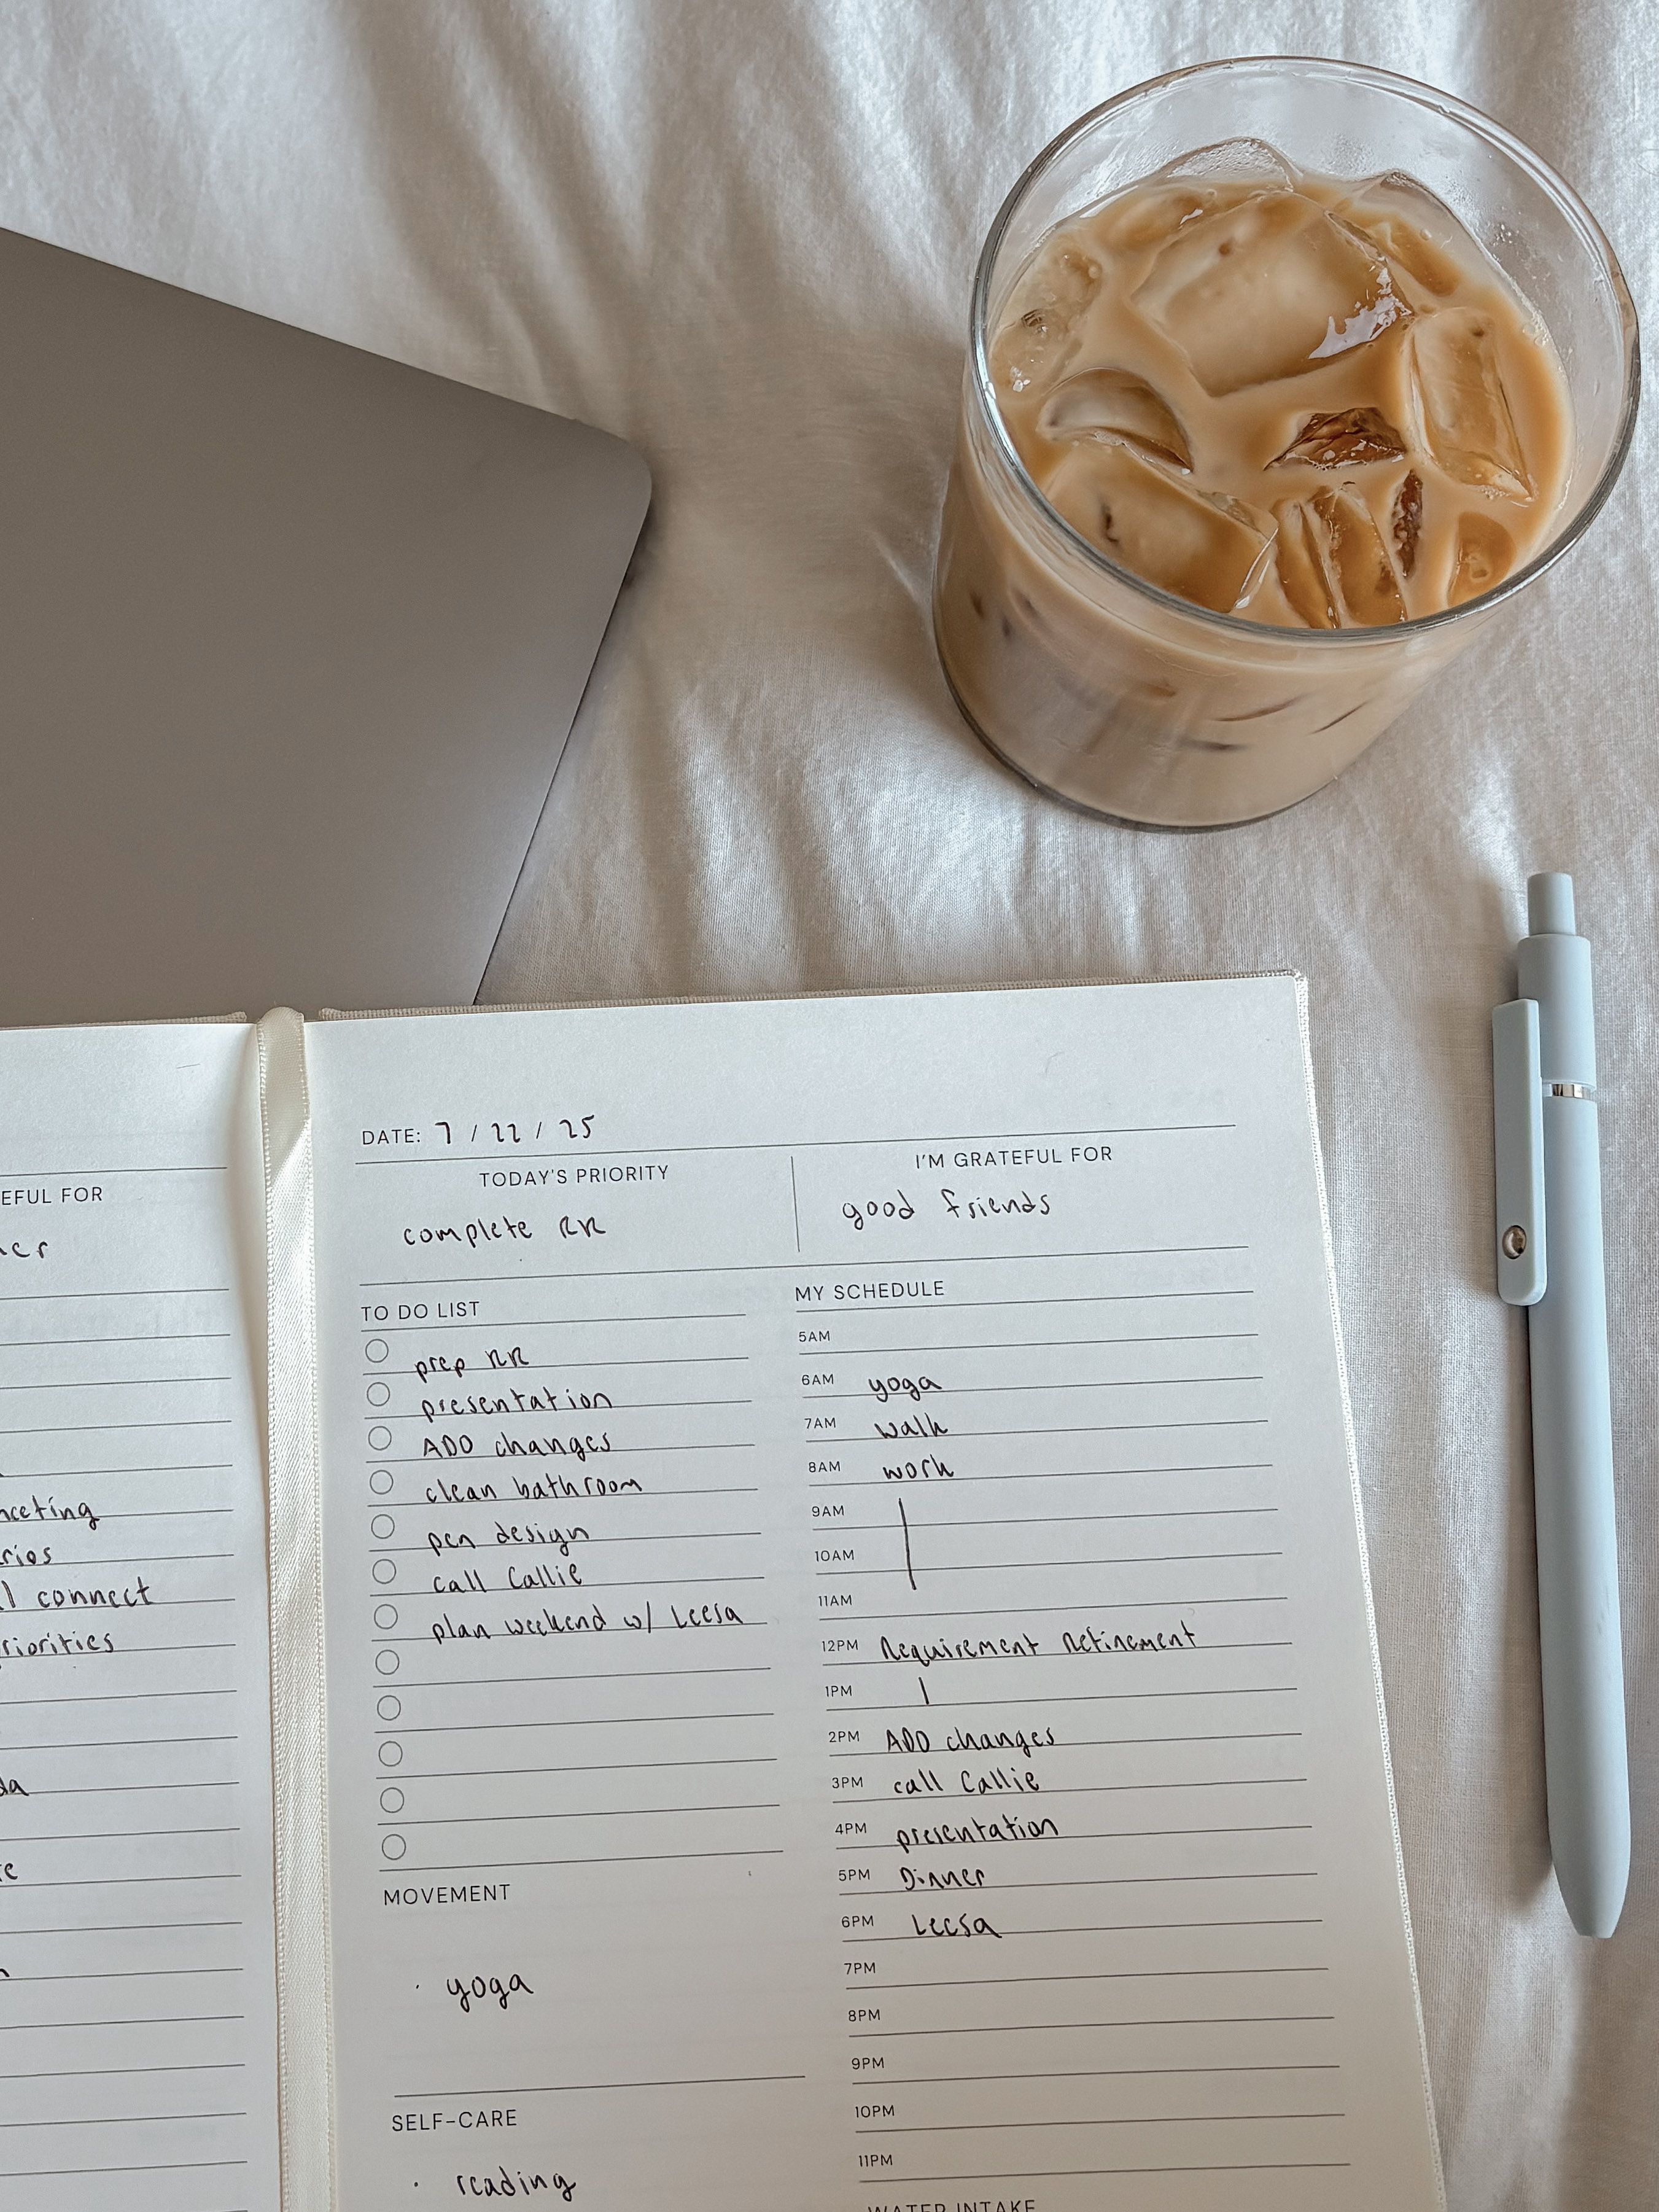 EFUL FOR
meeting
connect
DATE: 7 / 22 / 25
TODAY'S PRIORITY
complete RR
I'M GRATEFUL FOR
good friends
TO DO LIST
prep RR
presentation
ADO changes
clean bathroom
pen design
call Callie
plan weekend w/ Leesa
MOVEMENT
· yoga
SELF-CARE
· reading
MY SCHEDULE
5AM
6AM yoga
7AM walk
8AM work
9AM
10AM
11AM
12PM Requirement Refinement
1PM
2PM ADO changes
3PM call Callie
4PM presentation
5PM Dinner
6PM Leesa
7PM
8PM
9PM
10PM
11PM
WATER INTAKE